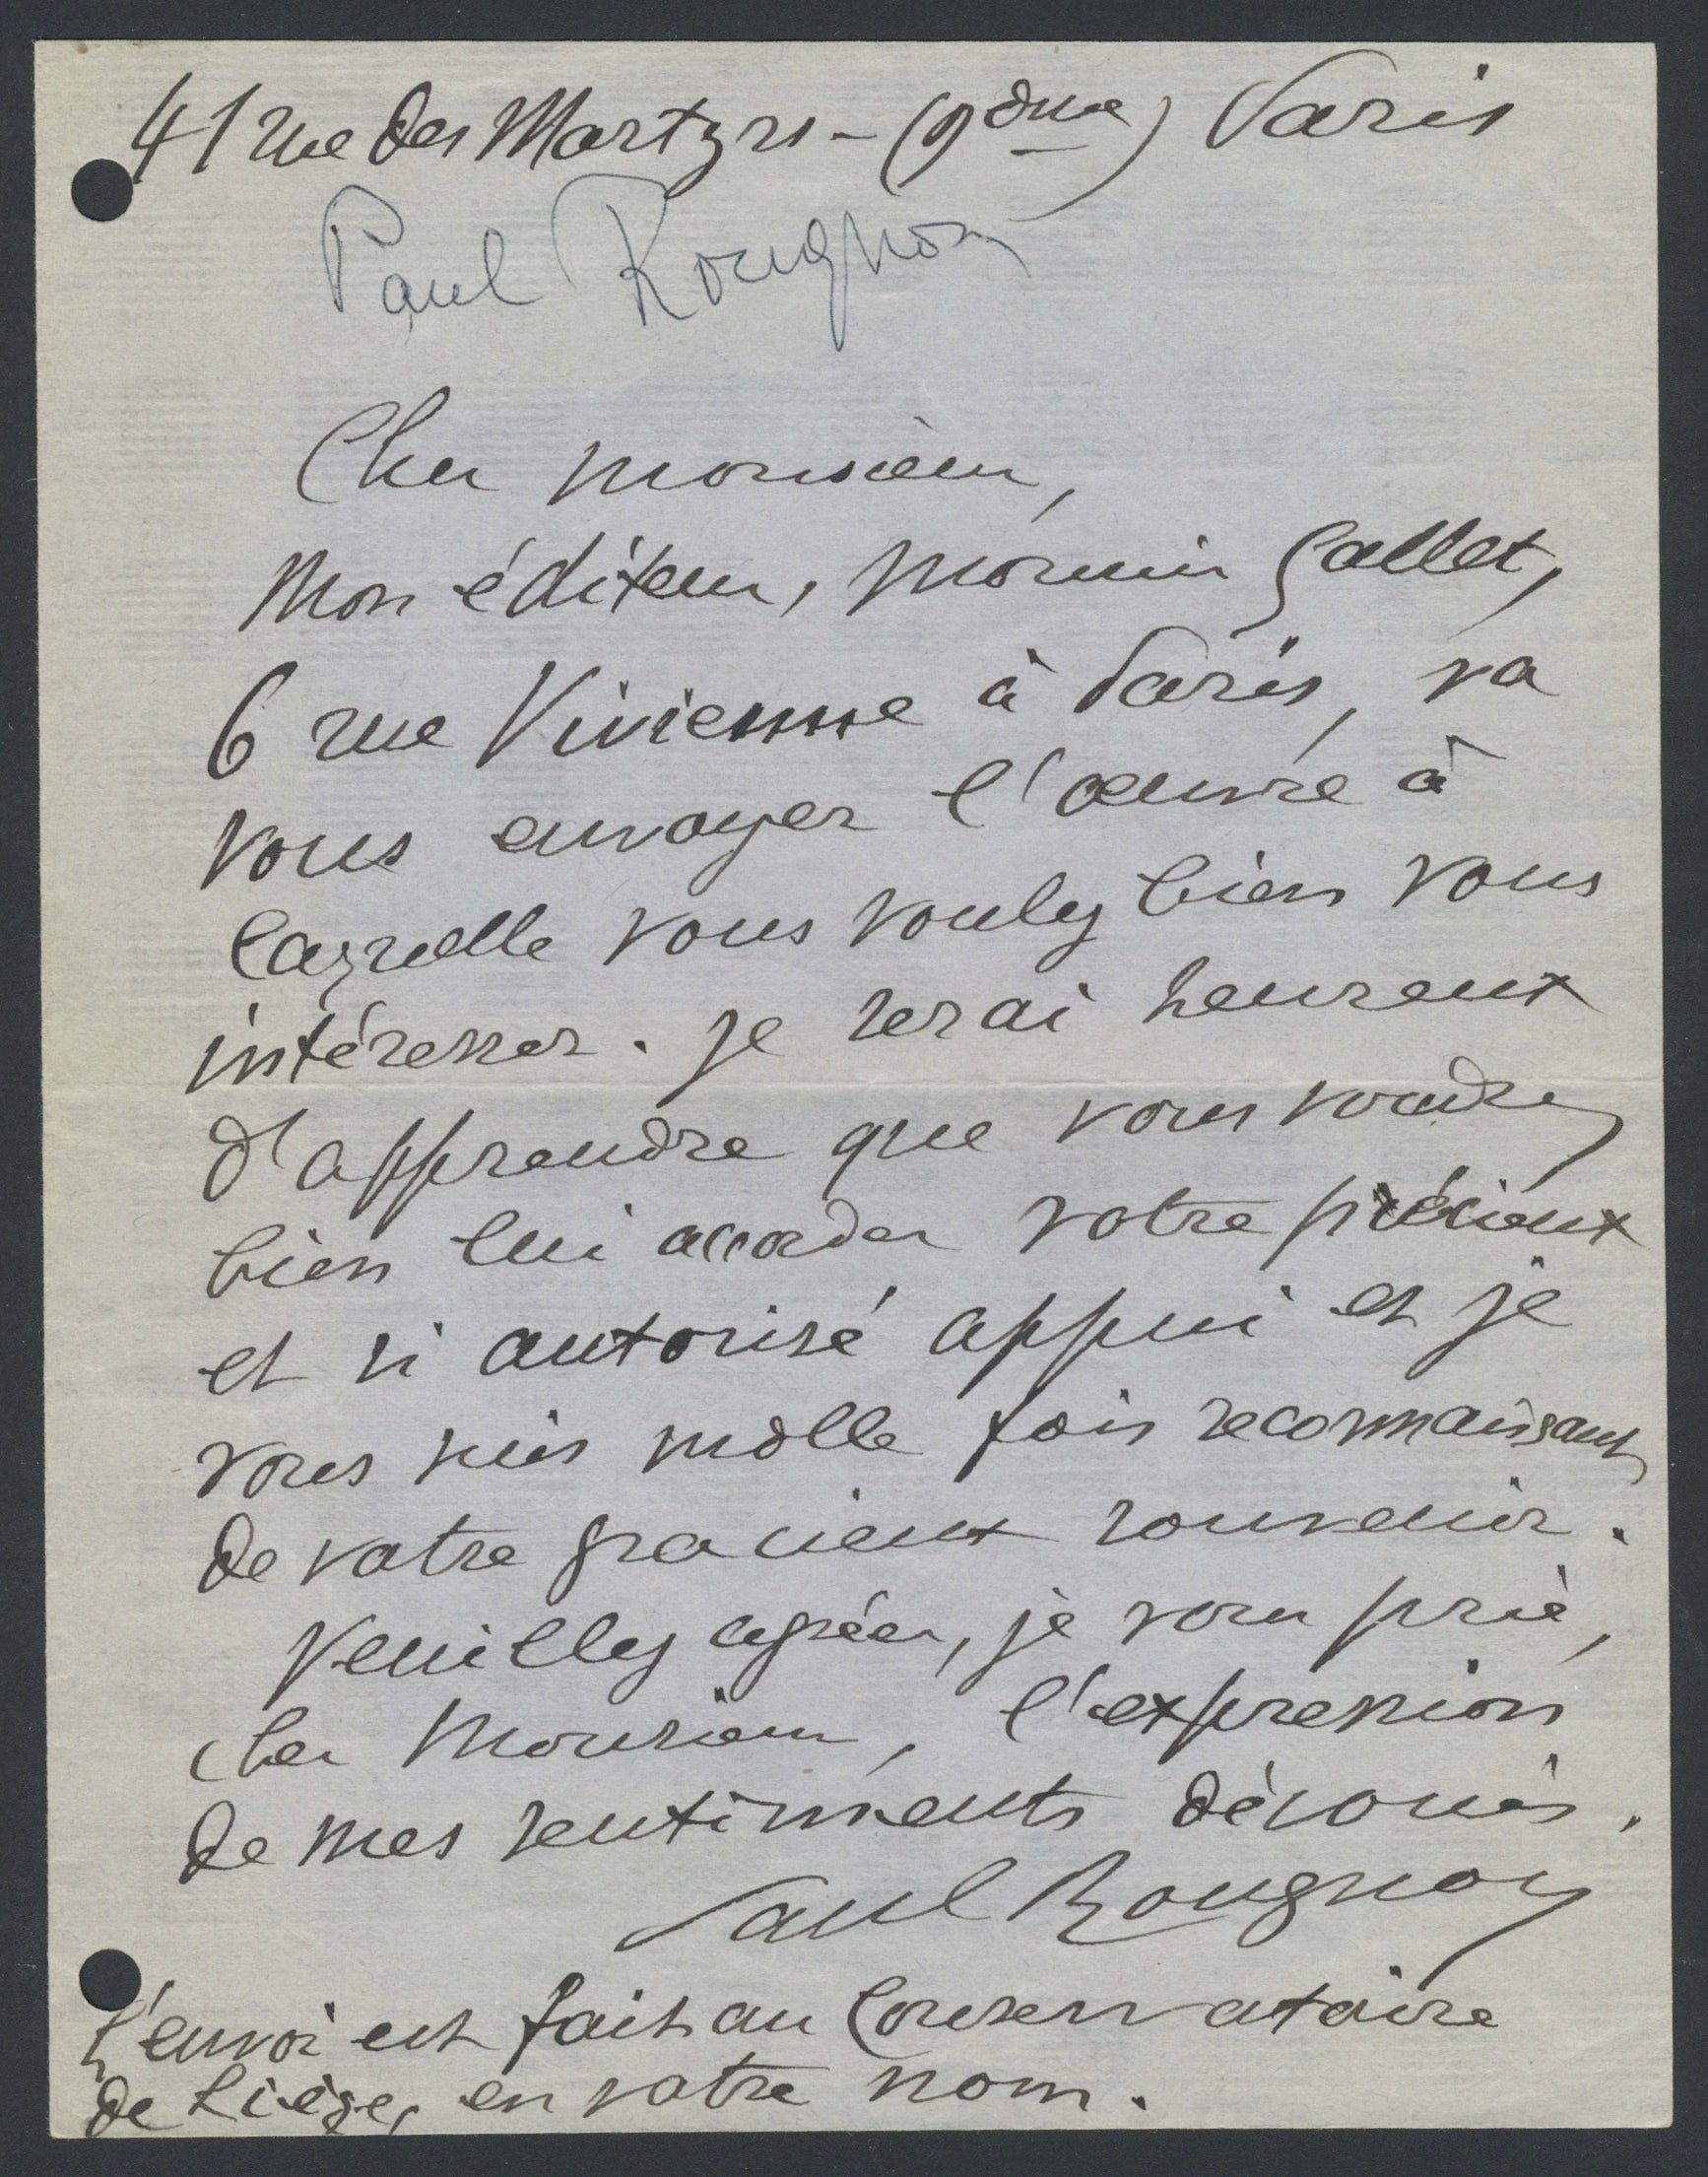 41 rue des Martyrs - (9ème) Paris
Paul Rougnon
Cher monsieur,
Mon éditeur, monsieur Gallet,
6 rue Vivienne à Paris, va
vous envoyer l'œuvre à
laquelle vous voulez bien vous
intéresser. Je serai heureux
d'apprendre que vous voudrez
bien lui accorder votre précieux
et si autorisé appui et je
vous suis mille fois reconnaissant
de votre gracieux souvenir.
Veuillez agréer, je vous prie,
cher Monsieur, l'expression
de mes sentiments dévoués.
Paul Rougnon
L'envoi est fait au Conservatoire
de Liège, en votre nom.